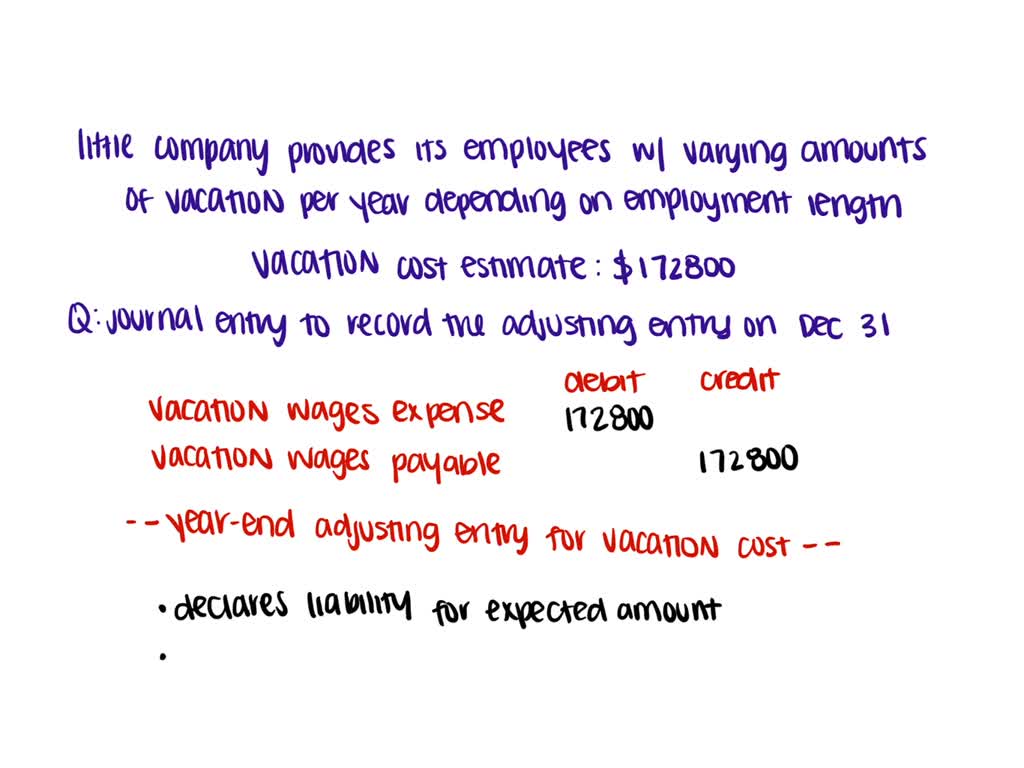 little company provides its employees w/ varying amounts
of vacation per year depending on employment length
vacation cost estimate: $172800
Q: journal entry to record the adjusting entry on Dec 31
debit credit
vacation wages expense 172800
vacation wages payable 172800
-- year-end adjusting entry for vacation cost --
• declares liability for expected amount
•